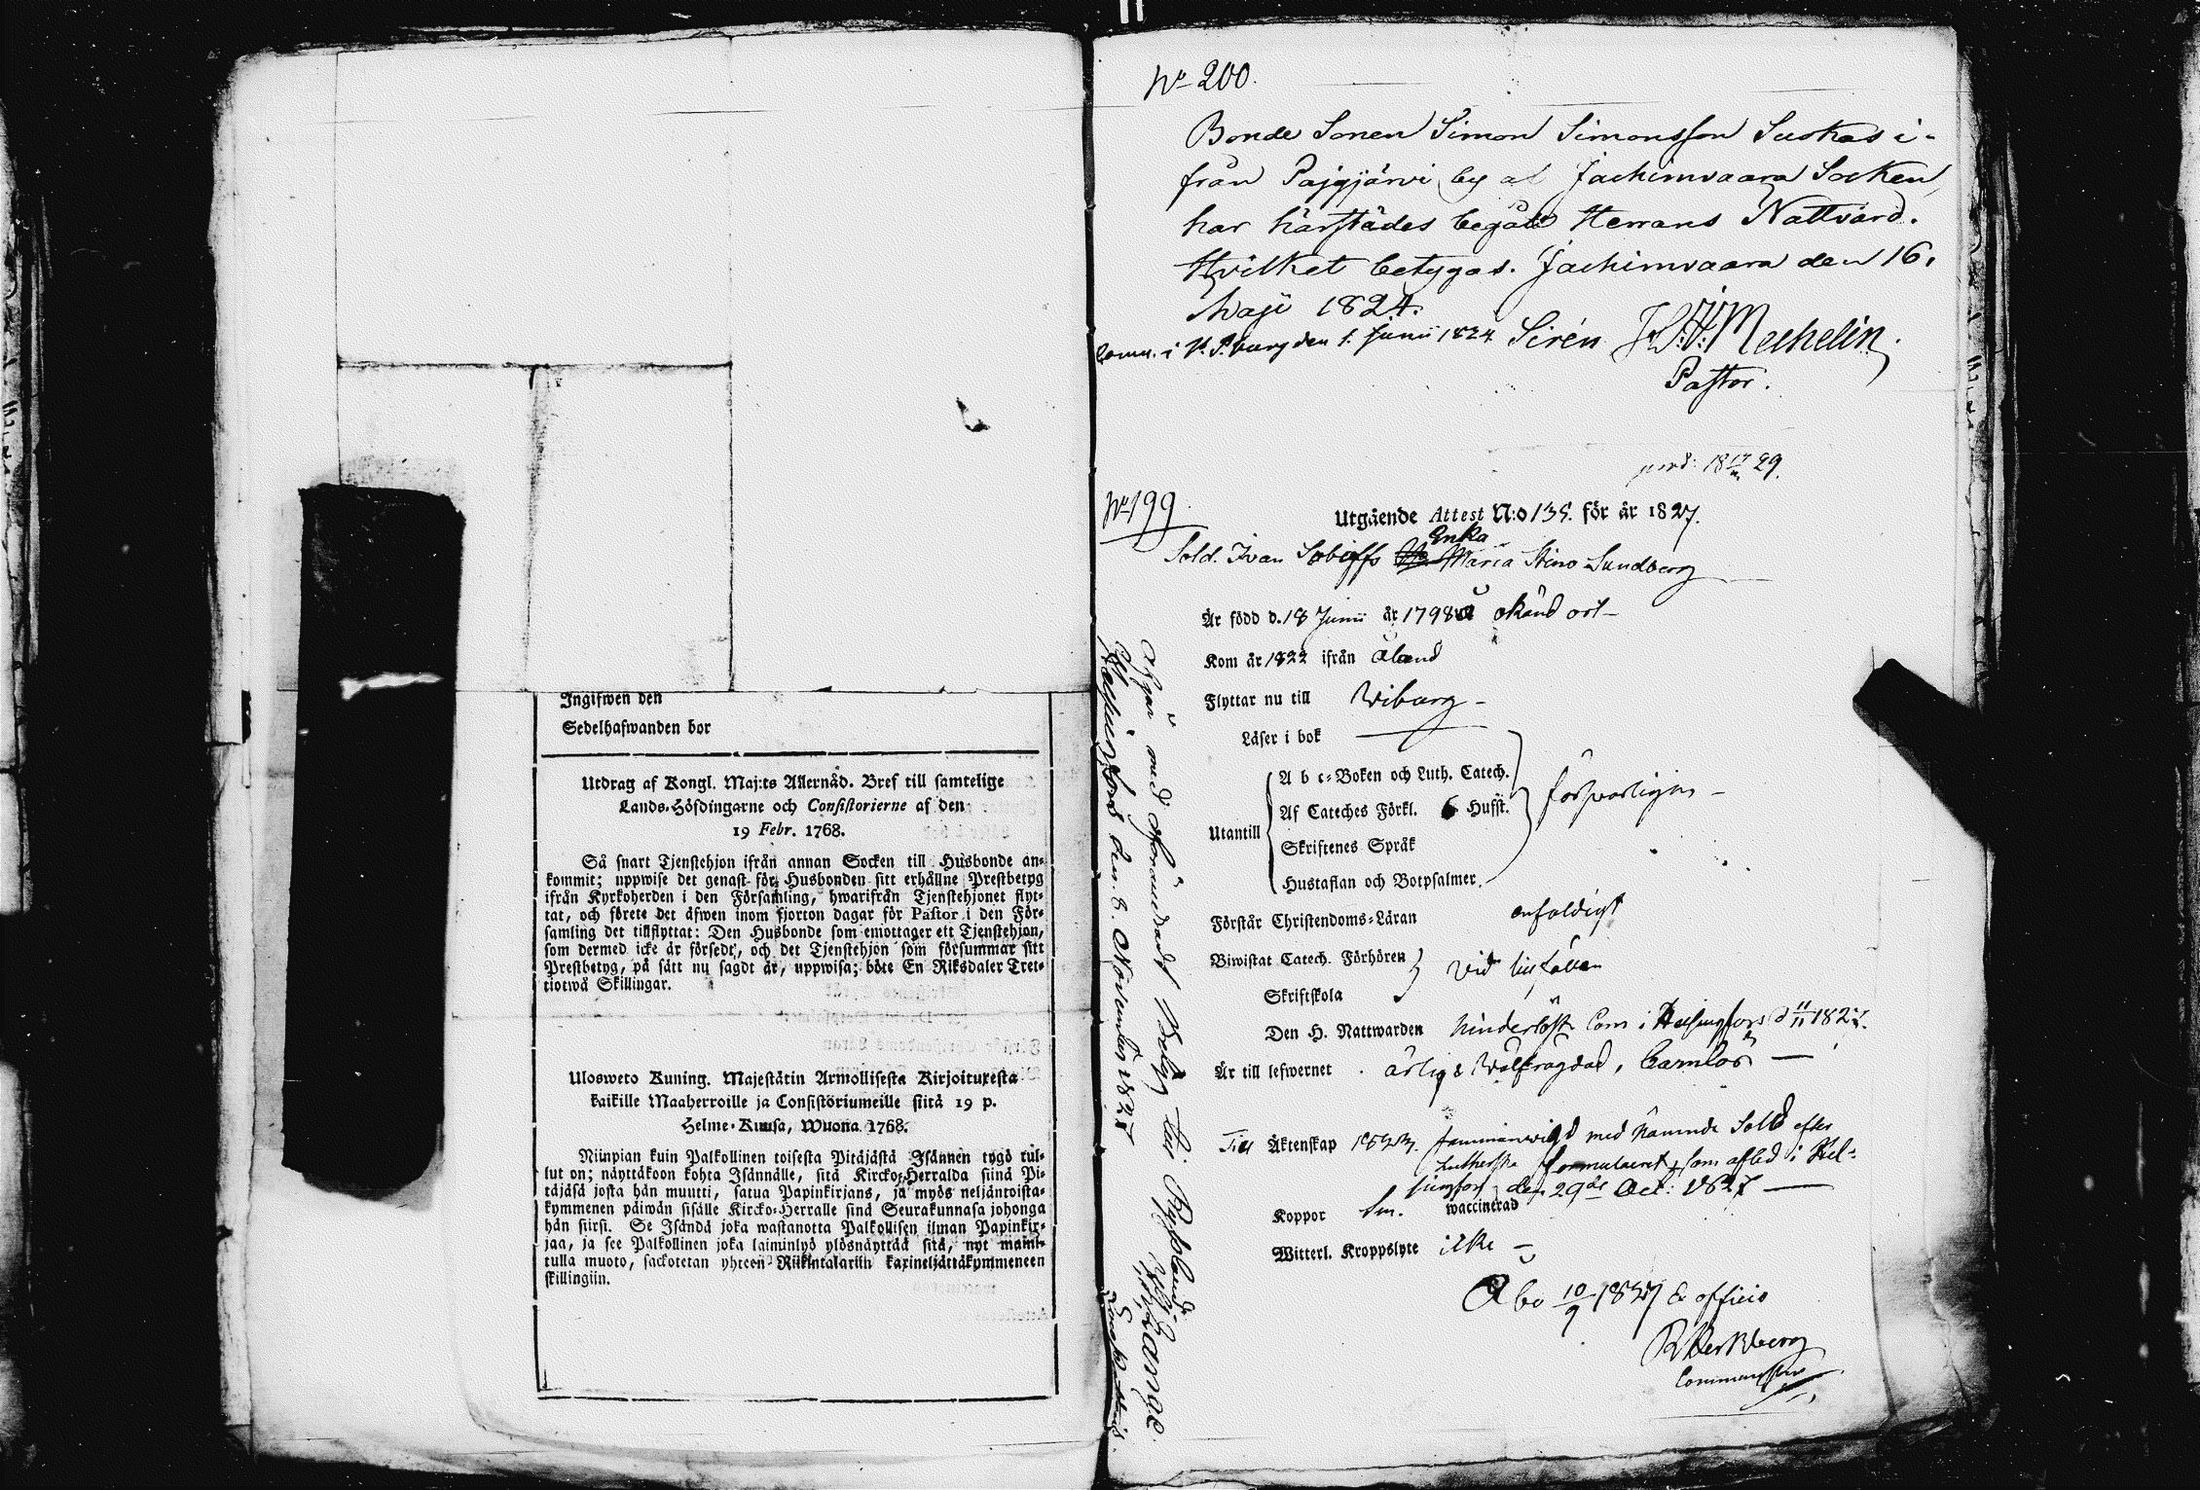 Ingifwen den
Sedelhafwanden bor
Utdrag af Kongl. Maj:ts Allernåd. Bref till samtelige
Lands-Höfdingarne och Consistorierne af den
19 Febr. 1768.
Så snart Tjenstehjon ifrån annan Socken till Husbonde an-
kommit; uppwise det genast för Husbonden sitt erhållne Prestbetyg
ifrån Kyrkoherden i den Församling, hwarifrån Tjenstehjonet flyt-
tat, och förete det äfwen inom fjorton dagar för Pastor i den För-
samling det tillflyttat: Den Husbonde som emottager ett Tjenstehjon,
som dermed icke är försedt, och det Tjenstehjon som försummar sitt
Prestbetyg, på sätt nu sagdt är, uppwisa; böte En Riksdaler Tret-
tiotwå Skillingar.
Ulosweto Kuning. Majestätin Armollisesta Kirjoituxesta
kaikille Maaherroille ja Consistöriumeille siitä 19 p.
Helme-Kuusa, Wuona 1768.
Niinpian kuin Palkollinen toisesta Pitäjästä Isännen tygö tul-
lut on; näyttäkoon kohta Isännälle, sitä Kircko-Herralda siinä Pi-
täjäsä josta hän muutti, satua Papinkirjans, ja myös neljäntoista-
kymmenen päiwän sisälle Kircko-Herralle sinä Seurakunnasa johonga
hän siirsi. Se Isändä joka wastanotta Palkollisen ilman Papinkir-
jaa, ja see Palkollinen joka laiminlyö ylösnäyttää sitä, nyt maini-
tulla muoto, sackotetan yhteen Riikintalariin kaxineljättäkymmeneen
skillingiin.
No 200.
Bonde Sonen Simon Simonsson Suokas i-
från Pajgjärvi by af Jachimvaara Socken,
har härstädes begått Herrans Nattvard.
Hvilket betygas. Jachimvaara den 16.
Maji 1824.
Comm. i St. P.burg den 1. Junii 1824 Sirén J. H. Mechelin
Pastor.
No 199
Utgående Attest N:o 135. för år 1827.
Enka
Sold. Ivan Sobiffs Maria Stina Sundberg
Är född d. 18 Junii år 1798 å okänd ort
Kom år 1822 ifrån Åland
Flyttar nu till Wiborg
Läser i bok
A b c-Boken och Luth. Catech.
Af Cateches Förkl. 6 Husst. försvarligen
Utantill
Skriftenes Språk
Hustaflan och Botpsalmer.
Förstår Christendoms-Läran enfaldigt
Biwistat Catech. Förhören vid tillfällen
Skriftskola
Den H. Nattwarden hinderlöst Com i Helsingfors d 11/11 1827.
Är till lefwernet ärlig & wälfrägdad, barnlös
Till Äktenskap 1823 sammanvigd med nämnde Sold efter
Lutherska formulairet, som afled i Hel-
singfors den 29de Oct. 1827
Koppor waccinerad
Witterl. Kroppslyte icke
Åbo 10/9 1827 Ex officio
Afgår med oförändradt Betyg till Ryssland.
Helsingfors den 8. November 1827